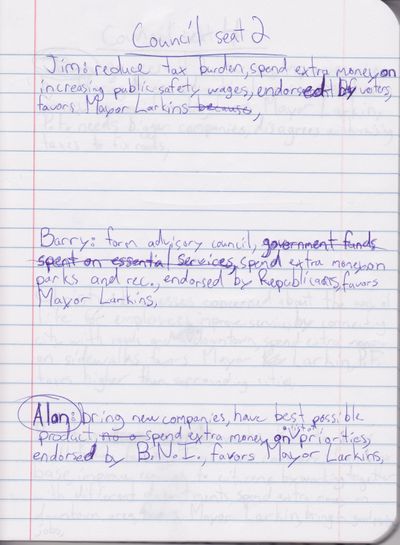 Council seat 2
Jim: reduce tax burden, spend extra money on
increasing public safety wages, endorsed by voters,
favors Mayor Larkins because,
Barry: form advisory council, government funds
spent on essential services, spend extra money on
parks and rec., endorsed by Republicans, favors
Mayor Larkins,
Alan: bring new companies, have best possible
product, no o spend extra money on "list of" priorities,
endorsed by B.N.I., favors Mayor Larkins,